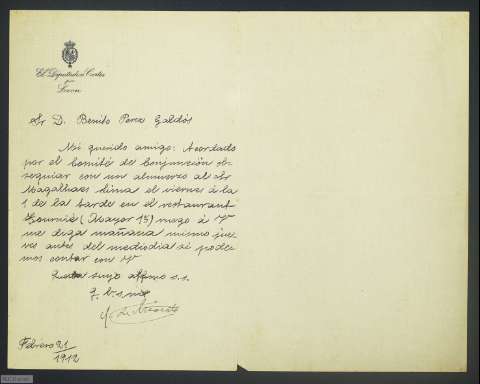 El Diputado á Cortes
por
León
Sr D. Benito Perez Galdós
Mi querido amigo: Acordado
por el Comité de Conjunción ob-
sequiar con un almuerzo al Sr
Magalhaes Lima el viernes á la
1 de la tarde en el restaurant
Tournié (Mayor 15) ruego á V
me diga mañana mismo jue-
ves antes del mediodia si pode-
mos contar con V
suyo affmo s.s.
q. b. s. m
Febrero 21
1912